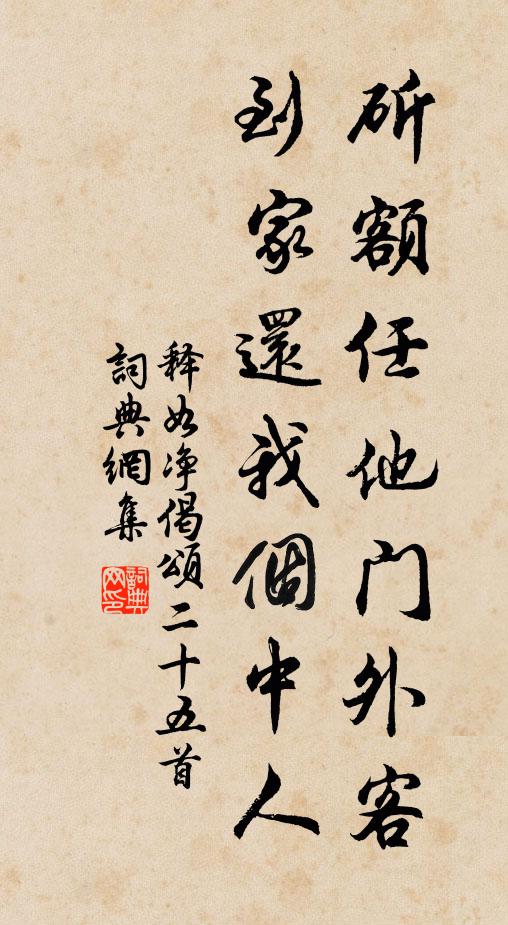 斫額任他门外客
到家還我個中人
释如净偈頌二十五首
詞典網集
詞典网印